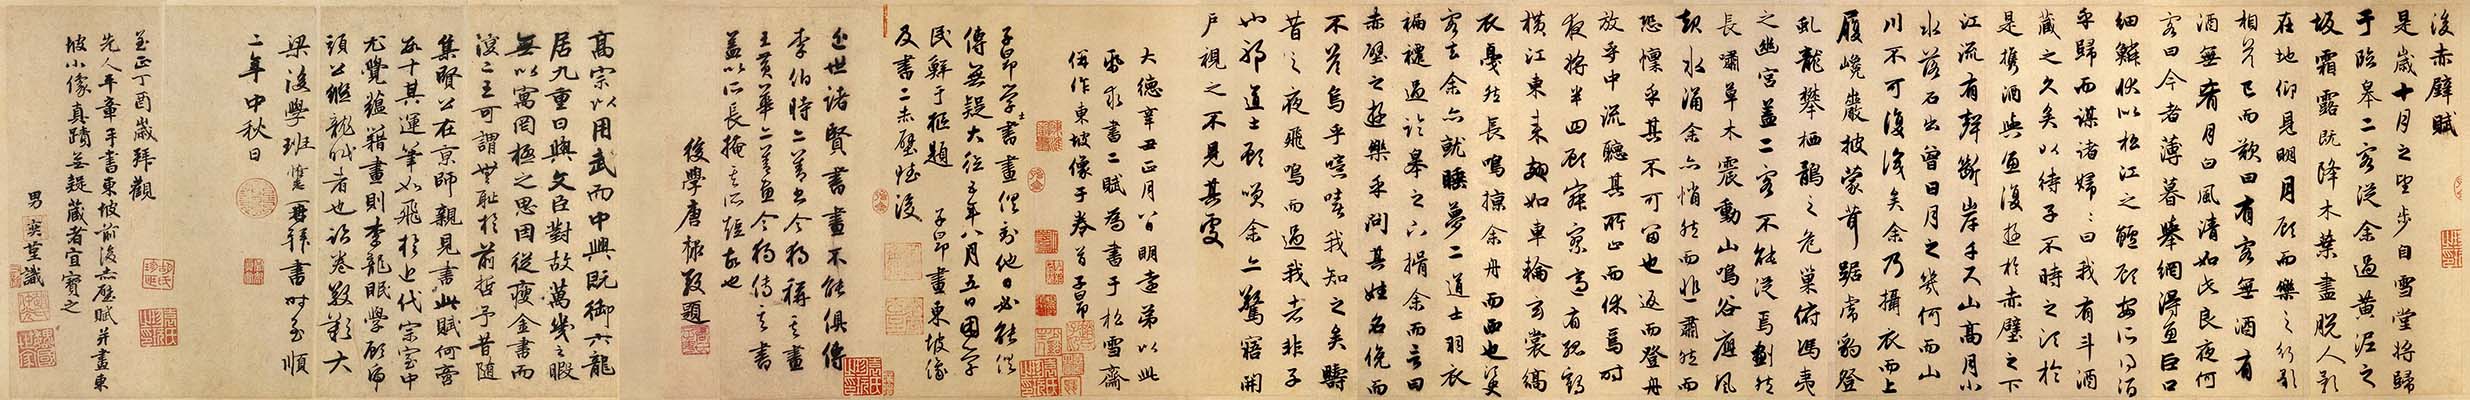 後赤壁賦
是歲十月之望步自雪堂將歸
于臨皋二客從余過黃泥之
坂霜露既降木葉盡脫人影
在地仰見明月顧而樂之行歌
相荅已而歎曰有客無酒有
酒無肴月白風清如此良夜何
客曰今者薄暮舉網得魚巨口
細鱗狀似松江之鱸顧安所得酒
乎歸而謀諸婦婦曰我有斗酒
藏之久矣以待子不時之須於
是攜酒與魚復遊於赤壁之下
江流有聲斷岸千尺山高月小
水落石出曾日月之幾何而山
川不可復識矣余乃攝衣而上
履巉巖披蒙茸踞虎豹登
虬龍攀栖鶻之危巢俯馮夷
之幽宮蓋二客不能從焉劃然
長嘯草木震動山鳴谷應風
起水涌余亦悄然而悲肅然而
恐懍乎其不可留也返而登舟
放乎中流聽其所止而休焉時
夜將半四顧寂寥適有孤鶴
橫江東來翅如車輪玄裳縞
衣戛然長鳴掠余舟而西也須臾
客去余亦就睡夢二道士羽衣
褊褼過臨皋之下揖余而言曰
赤壁之遊樂乎問其姓名俛而
不荅烏乎噫嘻我知之矣疇
昔之夜飛鳴而過我者非子
也邪道士顧笑余亦驚寤開
戶視之不見其處
大德辛丑正月八日明遠弟以此
紙求書二賦為書于松雪齋
併作東坡像于卷首子昂
子昂學士書畫俱到他日必能俱
傳無疑大德五年八月五日困學
民鮮于樞題子昂畫東坡像
及書二赤壁賦後
近世諸賢書畫不能俱傳
李伯時亦善書今獨稱其畫
王黃華亦善畫今獨傳其書
蓋以所長掩其所短故也
後學唐棣敬題
高宗以用武而中興既御六龍
居九重日與文臣對故萬幾之暇
無以寓罔極之思因從瘦金書而
泝二王可謂無恥於前哲予昔隨
集賢公在京師親見書此賦何啻
五十其運筆如飛於近代宗室中
尤覺蘊藉畫則李龍眠學顧師
龍眠者也卷數大
梁後學班惟志再拜書時至順
二年中秋日
至正丁酉歲拜觀
先人平章手書東坡前後赤壁賦并畫東
坡小像真蹟無疑藏者宜寶之
男奕堇識